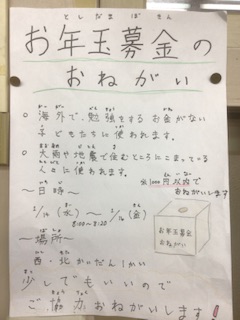 としだまぼきん
お年玉募金の
おねがい
○ 海外で、勉強をするお金がない
子どもたちに使われます。
○ 大雨や地震で住むところにこまっている
人々に使われます。
〜日時〜
※100円以内で
おねがいします
1/14(水)〜1/16(金)
8:00〜8:20
お年玉募金
おねがい
〜場所〜
西・北かいだん1かい
少しでもいいので
ご協力おねがいします!